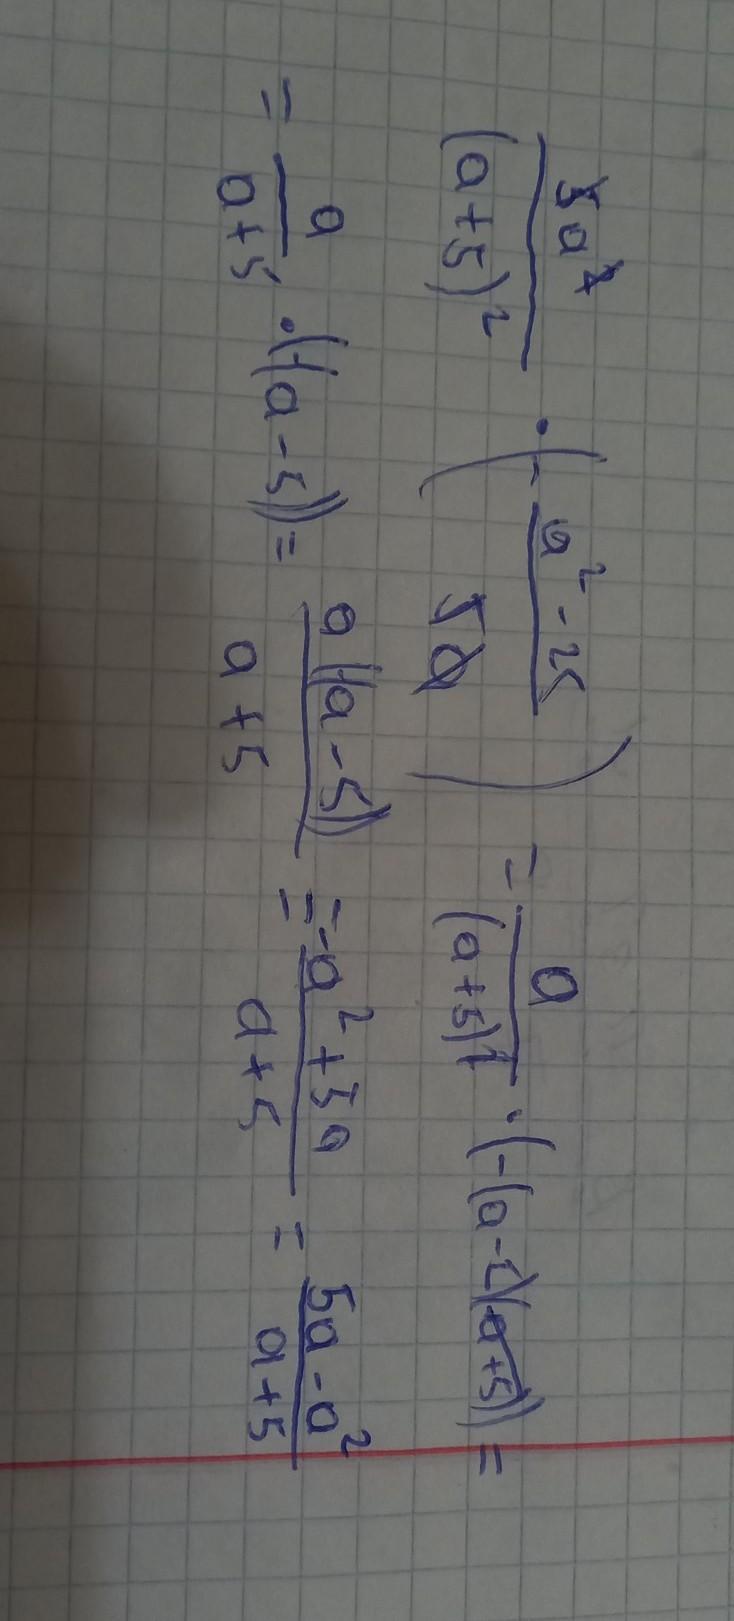 5a² / (a+5)² · (- a²-25 / 5a) = a / (a+5)² · (-(a-5)(a+5)) =
= a / a+5 · (-(a-5)) = a(-(a-5)) / a+5 = -a²+5a / a+5 = 5a-a² / a+5